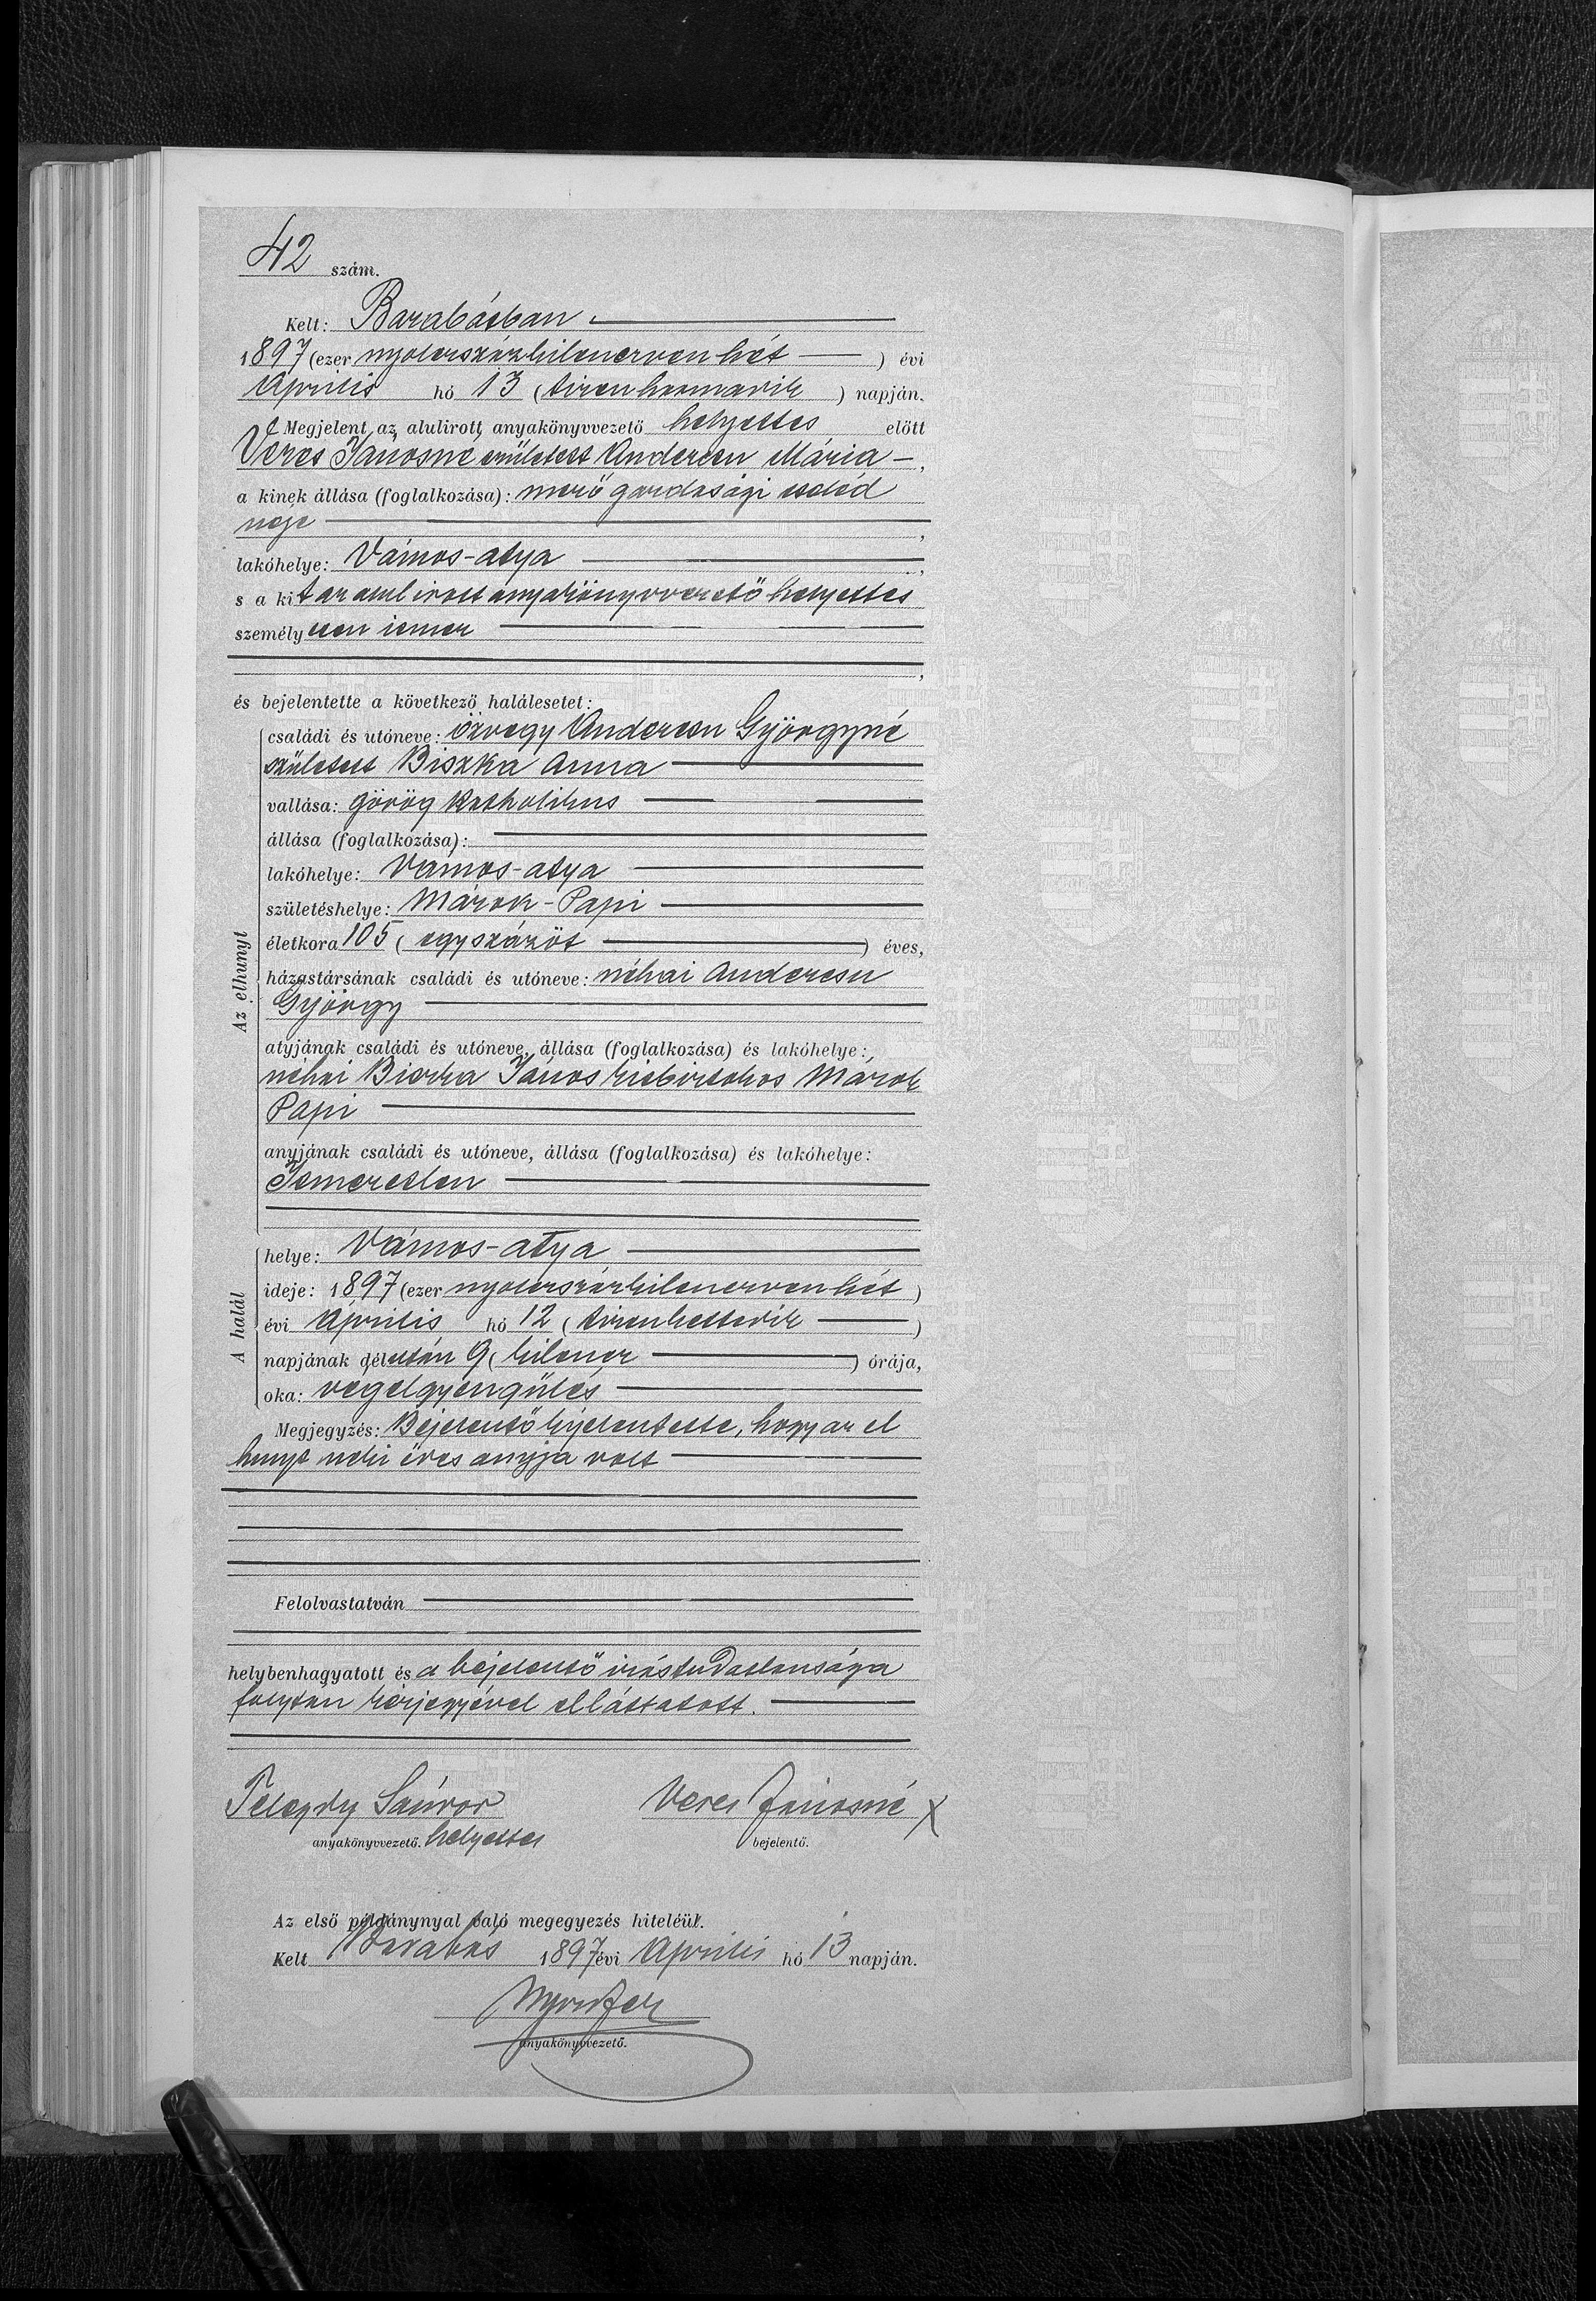 42 szám.
Kelt: Barabásban
1897 (ezer nyolczszázkilenczven hét) évi
Április hó 13 (tizenharmadik) napján.
Megjelent az alulirott anyakönyvvezető helyettes előtt
Veres Jánosné született Andercsu Mária,
a kinek állása (foglalkozása): mező gazdasági cseléd
neje,
lakóhelye: Vámos-atya,
s a kit az alulirott anyakönyvvezető helyettes
személyesen ismer
,
és bejelentette a következő halálesetet:
Az elhunyt
családi és utóneve: özvegy Andercsu Györgyné
született Biszka Anna
vallása: görög katholikus
állása (foglalkozása):
lakóhelye: Vámos-atya
születéshelye: Márok-Papi
életkora 105 (egyszázöt) éves,
házastársának családi és utóneve: néhai Andercsu
György
atyjának családi és utóneve, állása (foglalkozása) és lakóhelye:
néhai Biszka János kisbirtokos Márok
Papi
anyjának családi és utóneve, állása (foglalkozása) és lakóhelye:
Ismeretlen
A halál
helye: Vámos-atya
ideje: 1897 (ezer nyolczszázkilenczvenhét)
évi Április hó 12 (tizenkettedik)
napjának délután 9 (kilencz) órája,
oka: végelgyengülés
Megjegyzés: Bejelentő kijelentette, hogy az el
hunyt neki édes anyja volt
Felolvastatván
helybenhagyatott és a bejelentő irástudatlansága
folytán kézjegyével elláttatott.
Telegdy Sándor Veres Jánosné X
anyakönyvvezető. helyettes bejelentő.
Az első példánynyal való megegyezés hiteléül.
Kelt Barabás 1897 évi Április hó 13 napján.
anyakönyvvezető.